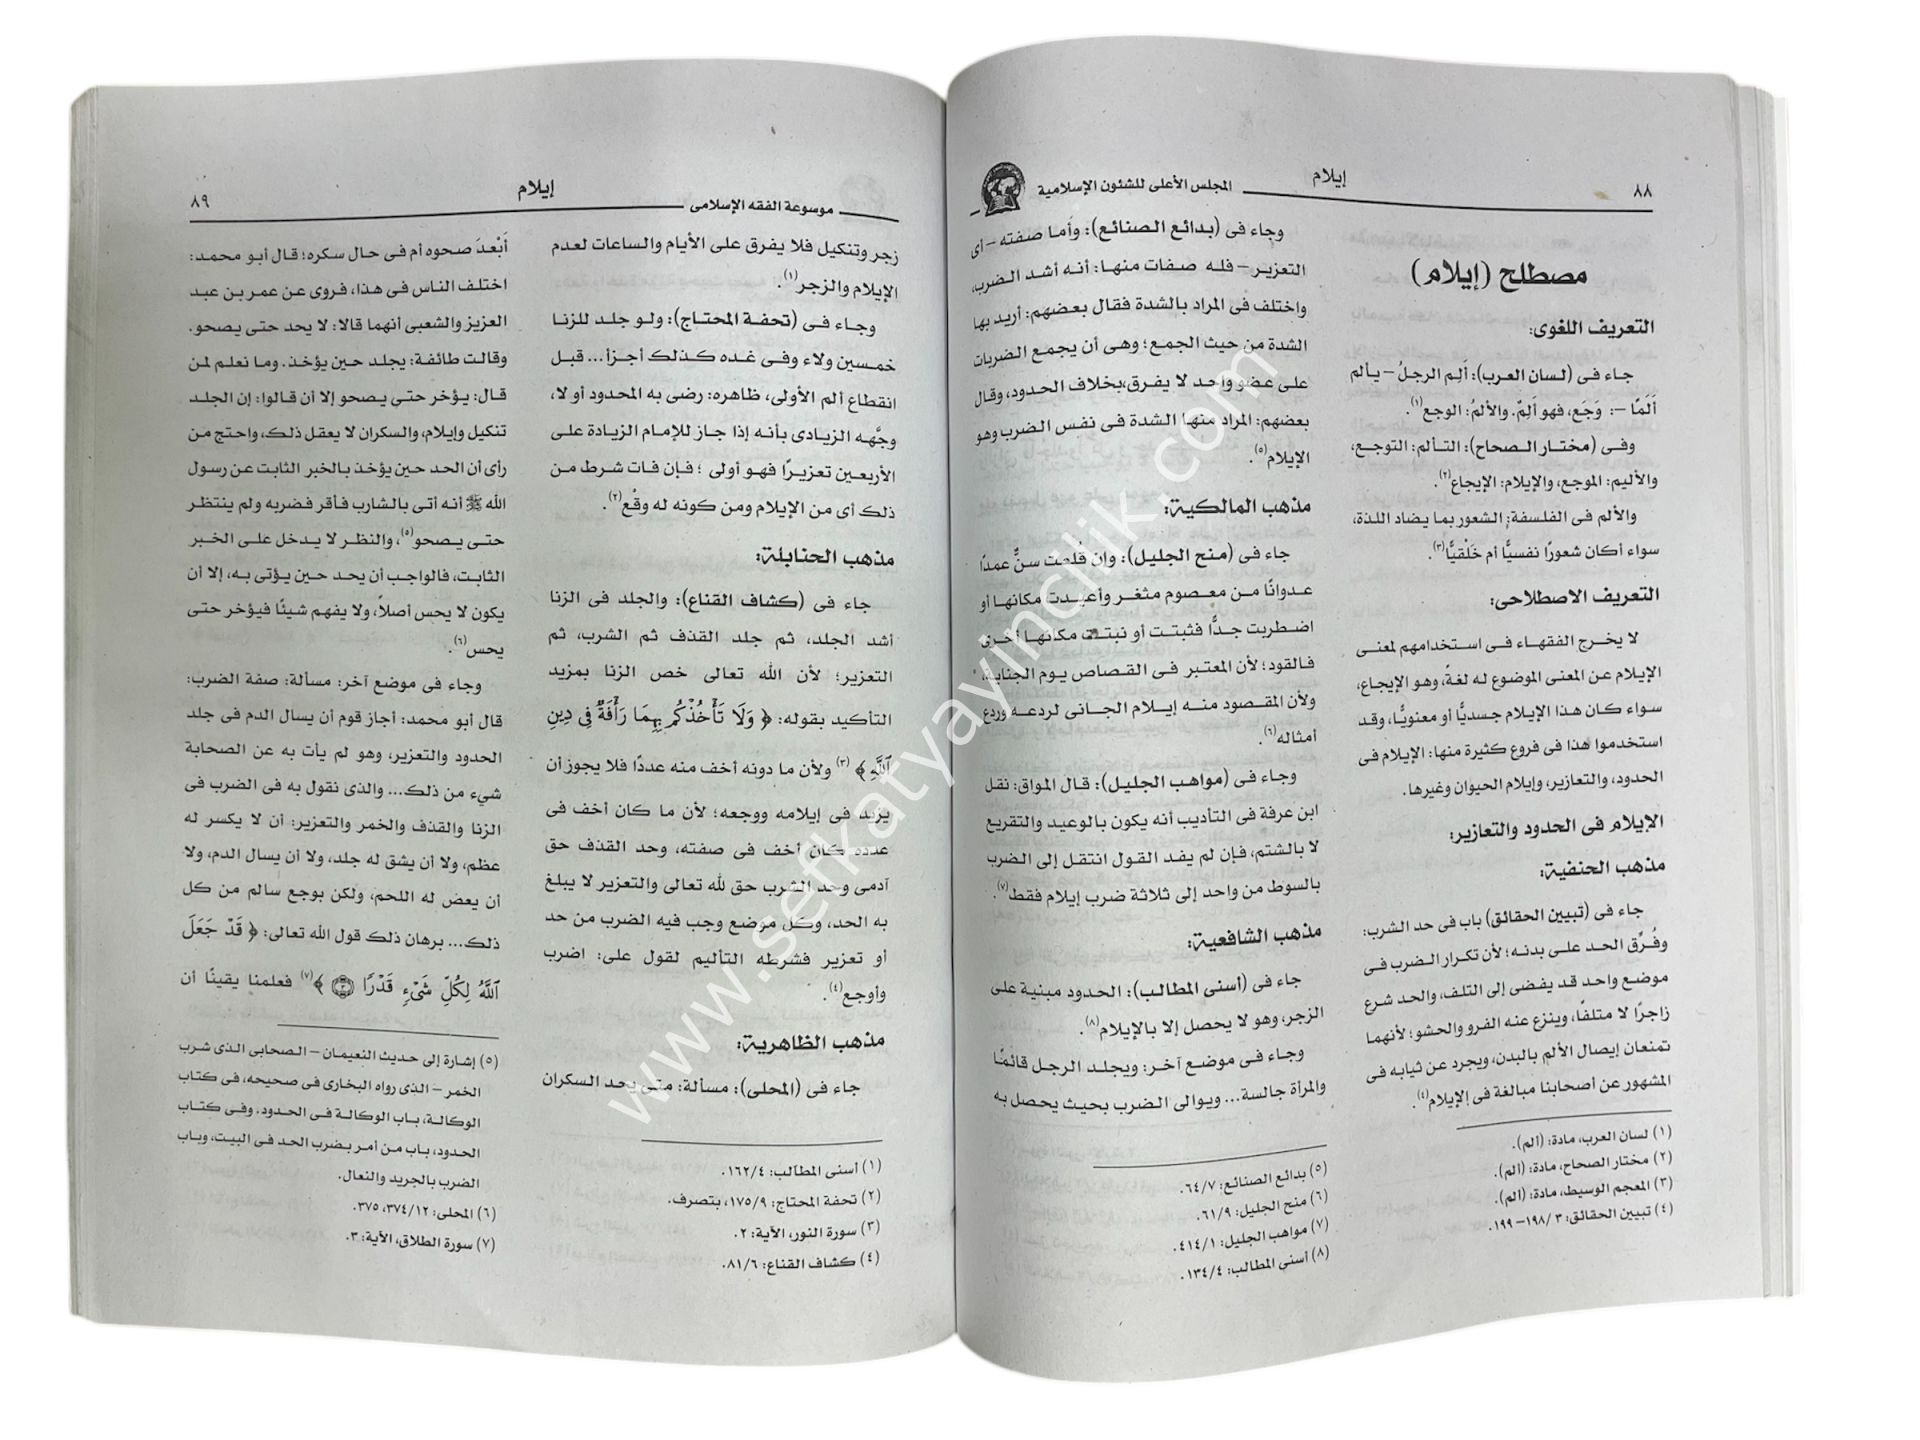 ٨٨
إيلام
المجلس الأعلى للشئون الإسلامية
مصطلح (إيلام)
التعريف اللغوى:
جاء فى (لسان العرب): أَلِم الرجلُ – يألم
أَلَمًا –: وَجَع، فهو أَلِمٌ. والألمُ: الوجع(١).
وفى (مختار الصحاح): التألم: التوجع،
والأليم: الموجع، والإيلام: الإيجاع(٢).
والألم فى الفلسفة: الشعور بما يضاد اللذة،
سواء أكان شعورًا نفسيًّا أم خَلْقيًّا(٣).
التعريف الاصطلاحى:
لا يخرج الفقهاء فى استخدامهم لمعنى
الإيلام عن المعنى الموضوع له لغةً، وهو الإيجاع،
سواء كان هذا الإيلام جسديًّا أو معنويًّا، وقد
استخدموا هذا فى فروع كثيرة منها: الإيلام فى
الحدود، والتعازير، وإيلام الحيوان وغيرها.
الإيلام فى الحدود والتعازير:
مذهب الحنفية:
جاء فى (تبيين الحقائق) باب فى حد الشرب:
وفُرِّق الحد على بدنه؛ لأن تكرار الضرب فى
موضع واحد قد يفضى إلى التلف، والحد شرع
زاجرًا لا متلفًا، وينزع عنه الفرو والحشو؛ لأنهما
تمنعان إيصال الألم بالبدن، ويجرد عن ثيابه فى
المشهور عن أصحابنا مبالغة فى الإيلام(٤).
(١) لسان العرب، مادة: (ألم).
(٢) مختار الصحاح، مادة: (ألم).
(٣) المعجم الوسيط، مادة: (ألم).
(٤) تبيين الحقائق: ٣ /١٩٨– ١٩٩.
وجاء فى (بدائع الصنائع): وأما صفته – أى
التعزير – فله صفات منها: أنه أشد الضرب،
واختلف فى المراد بالشدة فقال بعضهم: أريد بها
الشدة من حيث الجمع؛ وهى أن يجمع الضربات
على عضو واحد لا يفرق،بخلاف الحدود، وقال
بعضهم: المراد منها الشدة فى نفس الضرب وهو
الإيلام(٥).
مذهب المالكية:
جاء فى (منح الجليل): وإن قُلعت سنٌّ عمدًا
عدوانًا من معصوم مثغر وأعيدت مكانها أو
اضطربت جدًّا فثبتت أو نبتت مكانها أخرى
فالقود؛ لأن المعتبر فى القصاص يوم الجناية،
ولأن المقصود منه إيلام الجانى لردعه وردع
أمثاله(٦).
وجاء فى (مواهب الجليل): قال المواق: نقل
ابن عرفة فى التأديب أنه يكون بالوعيد والتقريع
لا بالشتم، فإن لم يفد القول انتقل إلى الضرب
بالسوط من واحد إلى ثلاثة ضرب إيلام فقط(٧).
مذهب الشافعية:
جاء فى (أسنى المطالب): الحدود مبنية على
الزجر، وهو لا يحصل إلا بالإيلام(٨).
وجاء فى موضع آخر: ويجلد الرجل قائمًا
والمرأة جالسة... ويوالى الضرب بحيث يحصل به
(٥) بدائع الصنائع: ٦٤/٧.
(٦) منح الجليل: ٦١/٩.
(٧) مواهب الجليل: ٤١٤/١.
(٨) أسنى المطالب: ١٣٤/٤.
موسوعة الفقه الإسلامى
إيلام
٨٩
زجر وتنكيل فلا يفرق على الأيام والساعات لعدم
الإيلام والزجر(١).
وجاء فى (تحفة المحتاج): ولو جلد للزنا
خمسين ولاء وفى غده كذلك أجزأ... قبل
انقطاع ألم الأولى، ظاهره: رضى به المحدود أو لا،
وجَّهه الزيادى بأنه إذا جاز للإمام الزيادة على
الأربعين تعزيرًا فهو أولى ؛ فإن فات شرط من
ذلك أى من الإيلام ومن كونه له وقْع(٢).
مذهب الحنابلة:
جاء فى (كشاف القناع): والجلد فى الزنا
أشد الجلد، ثم جلد القذف ثم الشرب، ثم
التعزير؛ لأن الله تعالى خص الزنا بمزيد
التأكيد بقوله: ﴿ وَلَا تَأْخُذْكُم بِهِمَا رَأْفَةٌ فِى دِينِ
ٱللَّهِ ﴾(٣) ولأن ما دونه أخف منه عددًا فلا يجوز أن
يزيد فى إيلامه ووجعه؛ لأن ما كان أخف فى
عدده كان أخف فى صفته، وحد القذف حق
آدمى وحد الشرب حق لله تعالى والتعزير لا يبلغ
به الحد، وكل موضع وجب فيه الضرب من حد
أو تعزير فشرطه التأليم لقول على: اضرب
وأوجع(٤).
مذهب الظاهرية:
جاء فى (المحلى): مسألة: متى يحد السكران
(١) أسنى المطالب: ١٦٢/٤.
(٢) تحفة المحتاج: ١٧٥/٩، بتصرف.
(٣) سورة النور، الآية: ٢.
(٤) كشاف القناع: ٨١/٦.
أَبْعدَ صحوه أم فى حال سكره؛ قال أبو محمد:
اختلف الناس فى هذا، فروى عن عمر بن عبد
العزيز والشعبى أنهما قالا: لا يحد حتى يصحو.
وقالت طائفة: يجلد حين يؤخذ. وما نعلم لمن
قال: يؤخر حتى يصحو إلا أن قالوا: إن الجلد
تنكيل وإيلام، والسكران لا يعقل ذلك، واحتج من
رأى أن الحد حين يؤخذ بالخبر الثابت عن رسول
الله ﷺ أنه أتى بالشارب فأقر فضربه ولم ينتظر
حتى يصحو(٥)، والنظر لا يدخل على الخبر
الثابت، فالواجب أن يحد حين يؤتى به، إلا أن
يكون لا يحس أصلاً، ولا يفهم شيئًا فيؤخر حتى
يحس(٦).
وجاء فى موضع آخر: مسألة: صفة الضرب:
قال أبو محمد: أجاز قوم أن يسال الدم فى جلد
الحدود والتعزير، وهو لم يأت به عن الصحابة
شيء من ذلك... والذى نقول به فى الضرب فى
الزنا والقذف والخمر والتعزير: أن لا يكسر له
عظم، ولا أن يشق له جلد، ولا أن يسال الدم، ولا
أن يعض له اللحم، ولكن بوجع سالم من كل
ذلك... برهان ذلك قول الله تعالى: ﴿ قَدْ جَعَلَ
ٱللَّهُ لِكُلِّ شَىْءٍ قَدْرًا ﴾(٧) فعلمنا يقينًا أن
(٥) إشارة إلى حديث النعيمان – الصحابى الذى شرب
الخمر – الذى رواه البخارى فى صحيحه، فى كتاب
الوكالة، باب الوكالة فى الحدود. وفى كتاب
الحدود، باب من أمر بضرب الحد فى البيت، وباب
الضرب بالجريد والنعال.
(٦) المحلى: ٣٧٤/١٢، ٣٧٥.
(٧) سورة الطلاق، الآية: ٣.
www.sefkatyayincilik.com